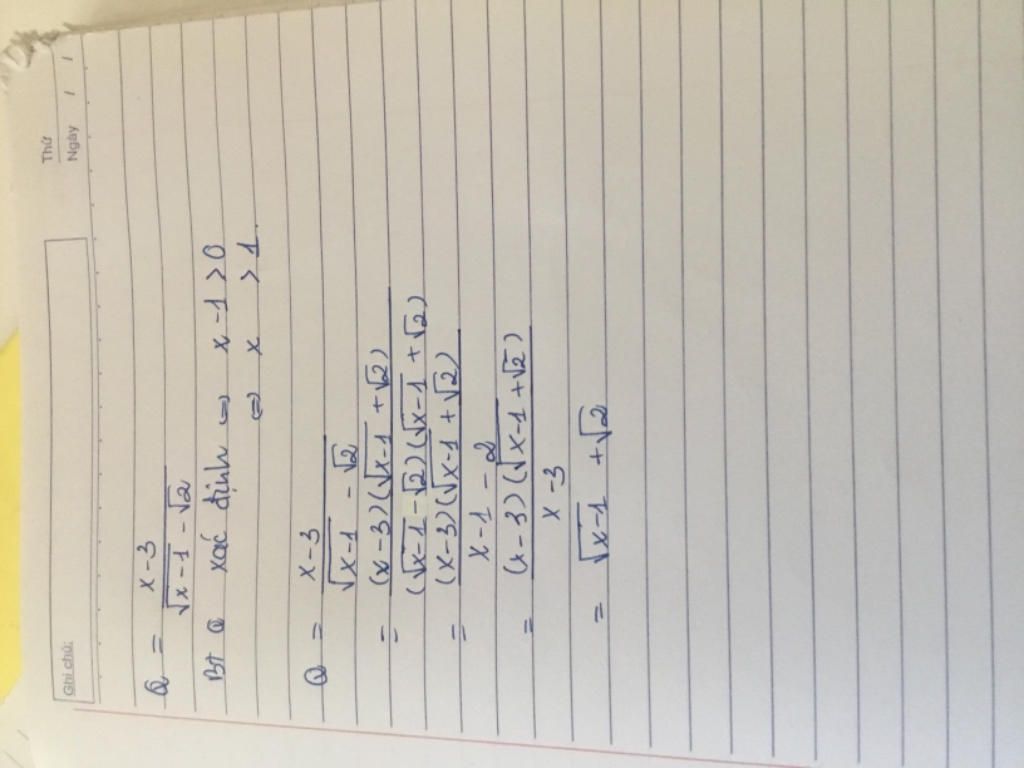 Ghi chú:
Thứ
Ngày / /
Q = \frac{x-3}{\sqrt{x-1}-\sqrt{2}}
Bt Q xác định ⇔ x-1 > 0
⇔ x > 1.
Q = \frac{x-3}{\sqrt{x-1}-\sqrt{2}}
= \frac{(x-3)(\sqrt{x-1}+\sqrt{2})}{(\sqrt{x-1}-\sqrt{2})(\sqrt{x-1}+\sqrt{2})}
= \frac{(x-3)(\sqrt{x-1}+\sqrt{2})}{x-1-2}
= \frac{(x-3)(\sqrt{x-1}+\sqrt{2})}{x-3}
= \sqrt{x-1}+\sqrt{2}